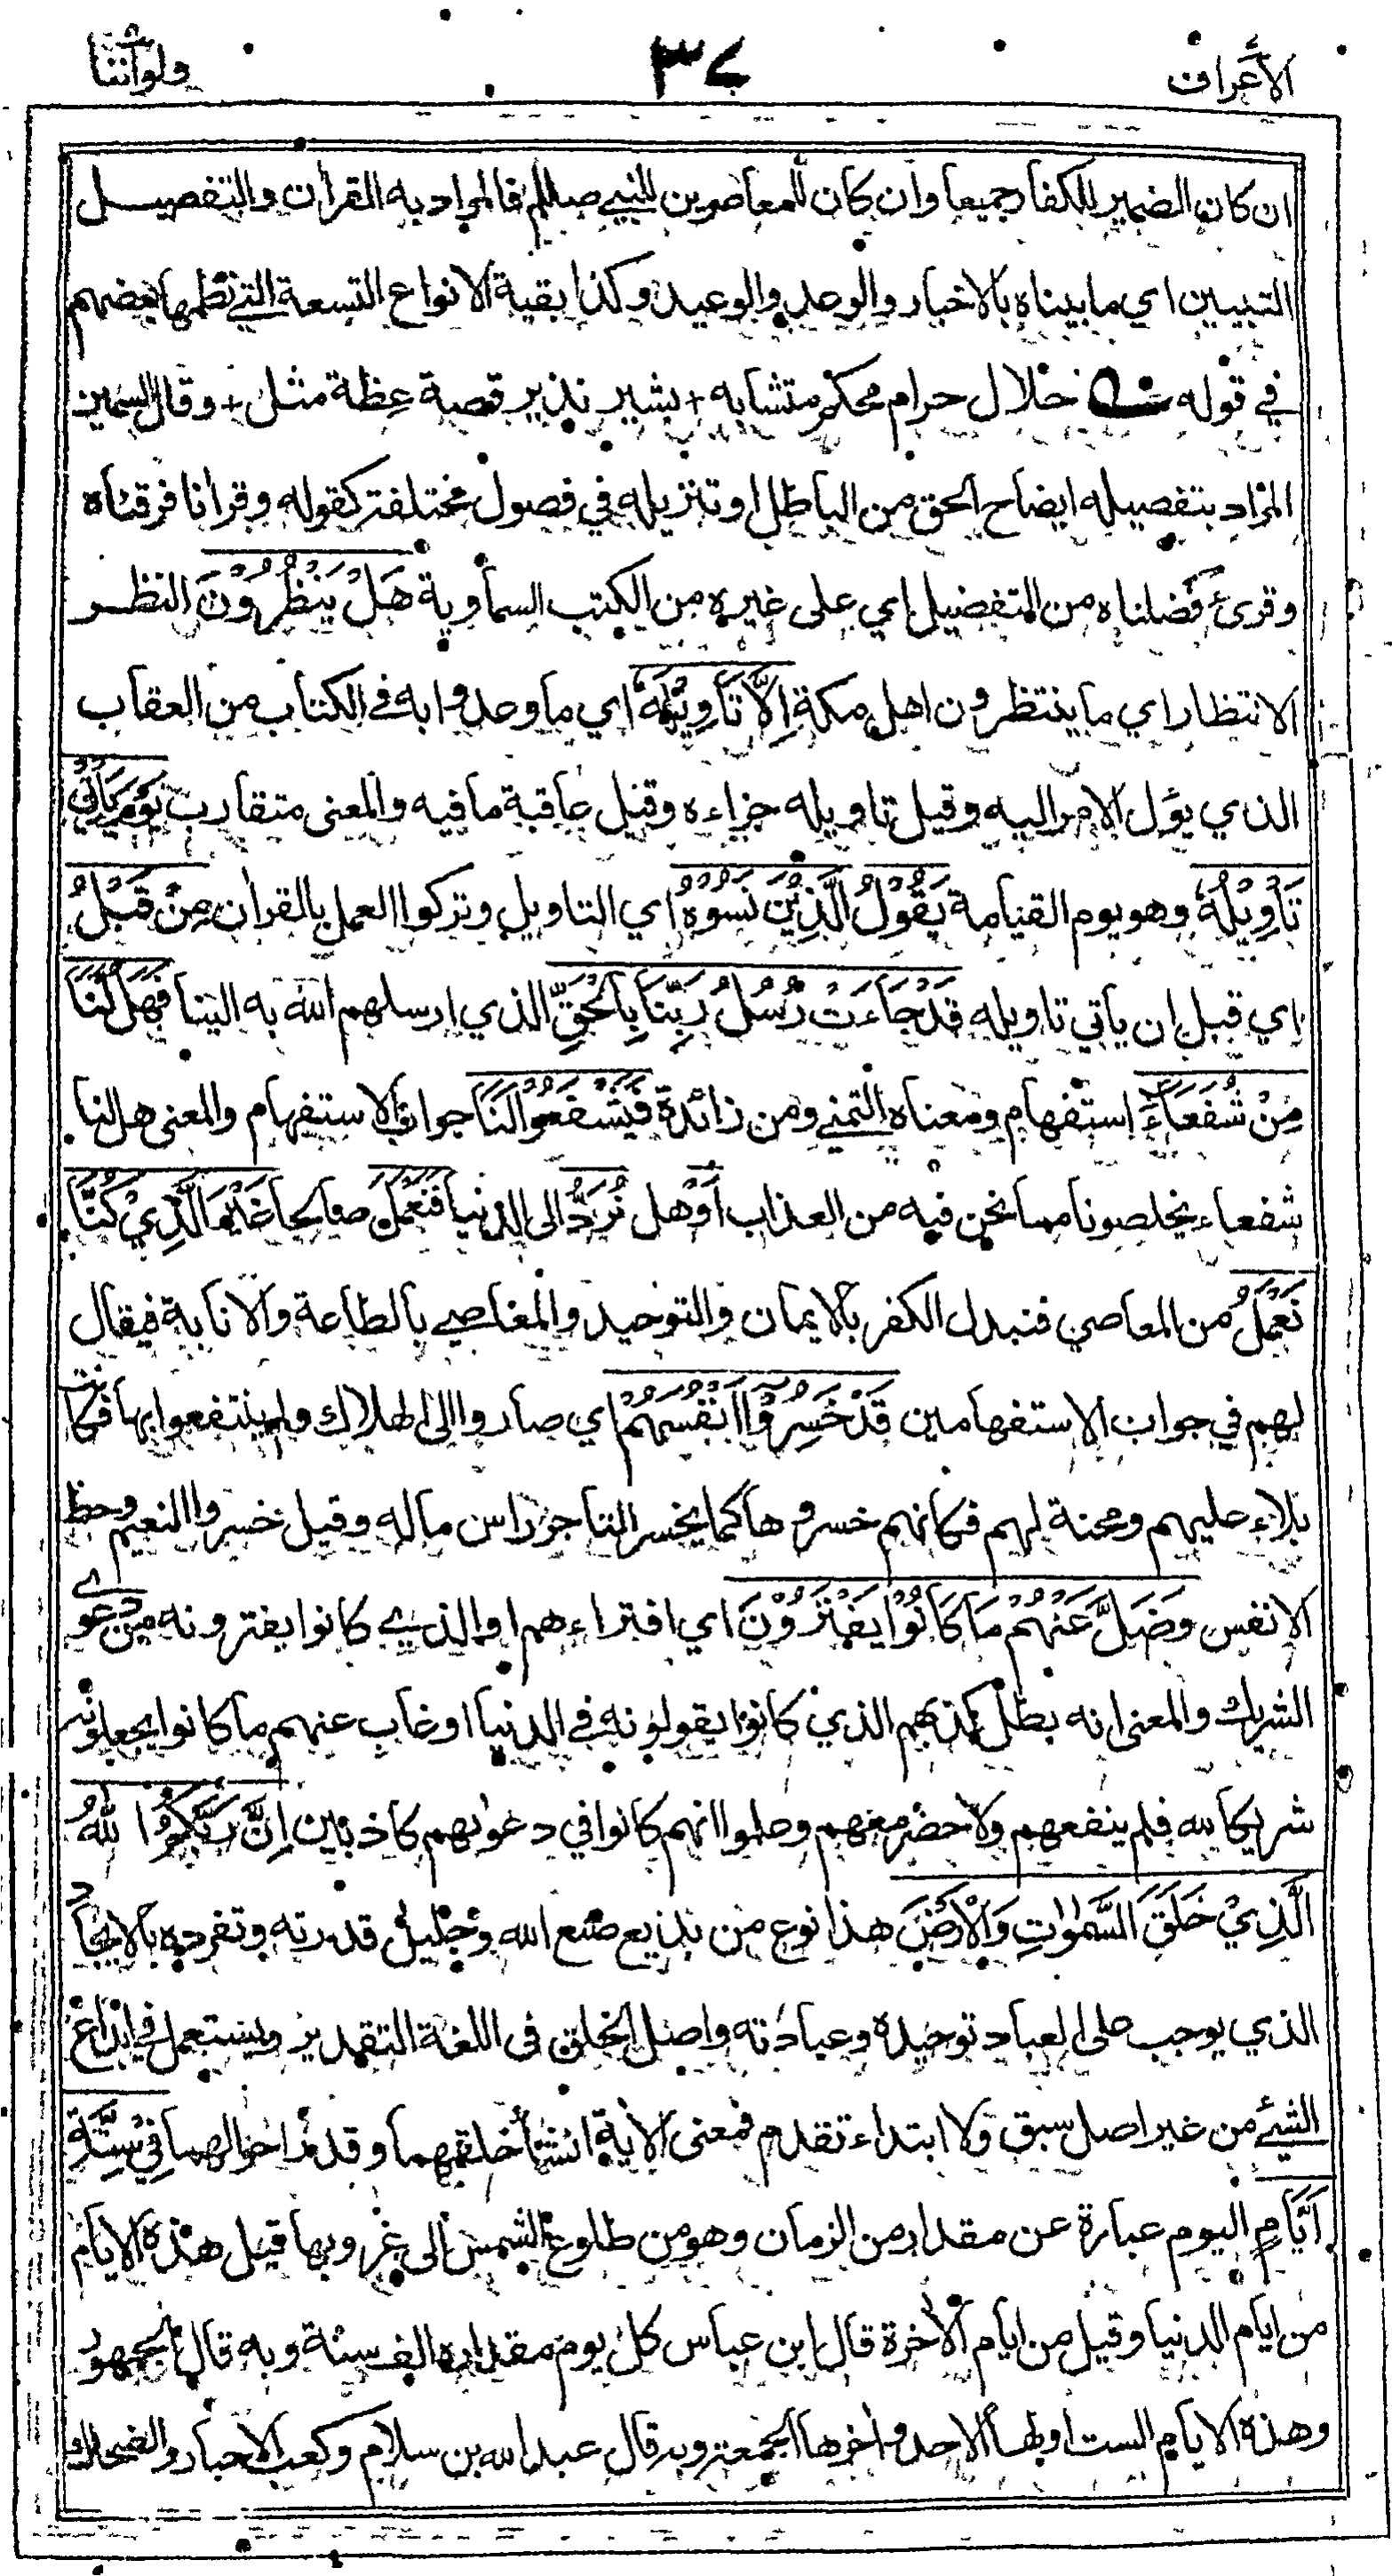 الأعراف ٣٧ ولواننا
ان كان الضمير للكفار جميعا وان كان للمعاصرين للنبي صللم فالمراد به القرأن والتفصيل
التبيين اي ما بيناه بالاخبار والوعد والوعيد وكذا بقية الانواع التسعة التي نظمها بعضهم
في قوله حلال حرام محكم متشابه + بشير نذير قصة عظة مثل + وقال السمين
المراد بتفصيله ايضاح الحق من الباطل او تنزيله في فصول مختلفة كقوله وقرانا فرقناه
وقرئ فَضلناه من التفضيل اي على غيره من الكتب السماوية هَلْ يَنْظُرُوْنَ النظر
الانتظار اي ما ينتظرون اهل مكة اِلَّا تَاْوِيْلَهٗ اي ما وعدوا به في الكتاب من العقاب
الذي يؤل الامر اليه وقيل تاويله جزاءه وقيل عاقبة ما فيه والمعنى متقارب يَوْمَ يَاْتِيْ
تَاْوِيْلُهٗ وهو يوم القيامة يَقُوْلُ الَّذِيْنَ نَسُوْهُ اي التاويل وتركوا العمل بالقرأن مِنْ قَبْلُ
اي قبل ان ياتي تاويله قَدْ جَاءَتْ رُسُلُ رَبِّنَا بِالْحَقِّ الذي ارسلهم الله به الينا فَهَلْ لَنَا
مِنْ شُفَعَاءَ استفهام ومعناه التمني ومن زائدة فَيَشْفَعُوْا لَنَا جواب الاستفهام والمعنى هل لنا
شفعاء يخلصونا مما نحن فيه من العذاب اَوْ هل نُرَدُّ الى الدنيا فَنَعْمَلَ صالحا غَيْرَ الَّذِيْ كُنَّا
نَعْمَلُ من المعاصي فنبدل الكفر بالايمان والتوحيد والمعاصي بالطاعة والانابة فيقال
لهم في جواب الاستفهامين قَدْ خَسِرُوْا اَنْفُسَهُمْ اي صاروا الى الهلاك ولم ينتفعوا بها فكانت
بلاء عليهم ومحنة لهم فكانهم خسروها كما يخسر التاجر راس ماله وقيل خسروا النعيم وحظ
الانفس وَضَلَّ عَنْهُمْ مَا كَانُوْا يَفْتَرُوْنَ اي افتراءهم او الذي كانوا يفترونه من دعوى
الشريك والمعنى انه بطل كذبهم الذي كانوا يقولونه في الدنيا او غاب عنهم ما كانوا يجعلونه
شريكا لله فلم ينفعهم ولا حضر معهم وعلموا انهم كانوا في دعوٰهم كاذبين اِنَّ رَبَّكُمُ اللهُ
الَّذِيْ خَلَقَ السَّمٰوٰتِ وَالْاَرْضَ هذا نوع من بديع صنع الله وجليل قدرته وتفرده بالايجاد
الذي يوجب على العباد توحيده وعبادته واصل الخلق في اللغة التقدير ويستعمل في ابداع
الشيئ من غير اصل سبق ولا ابتداء تقدم فمعنى الاية انشأ خلقهما وقدر احوالهما فِيْ سِتَّةِ
اَيَّامٍ اليوم عبارة عن مقدار من الزمان وهو من طلوع الشمس الى غروبها قيل هذه الايام
من ايام الدنيا وقيل من ايام الأخرة قال ابن عباس كل يوم مقداره الف سنة وبه قال الجمهور
وهذه الايام الست اولها الاحد واخرها الجمعة وبه قال عبد الله بن سلام وكعب الاحبار والضحاك